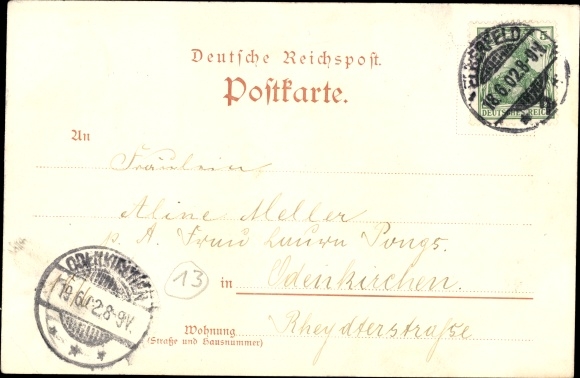 Deutsche Reichspost.
Postkarte.
ELBERFELD
18.6.02.8-9V.
5
DEUTSCHES REICH
An
Fräulein
Aline Meller
p. A. Frau Laura Pongs.
13
in Odenkirchen.
Wohnung Rheydterstraße
(Straße und Hausnummer)
ODENKIRCHEN
19.6.02.8-9V.